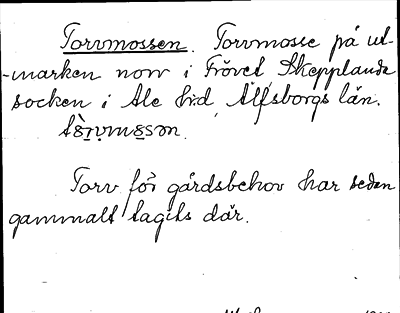 Torvmossen. Torvmosse på ut-
-marken norr i Frövet, Skepplanda
socken i Ale h:d, Älfsborgs län.
Torv för gårdsbehov har sedan
gammalt tagits där.